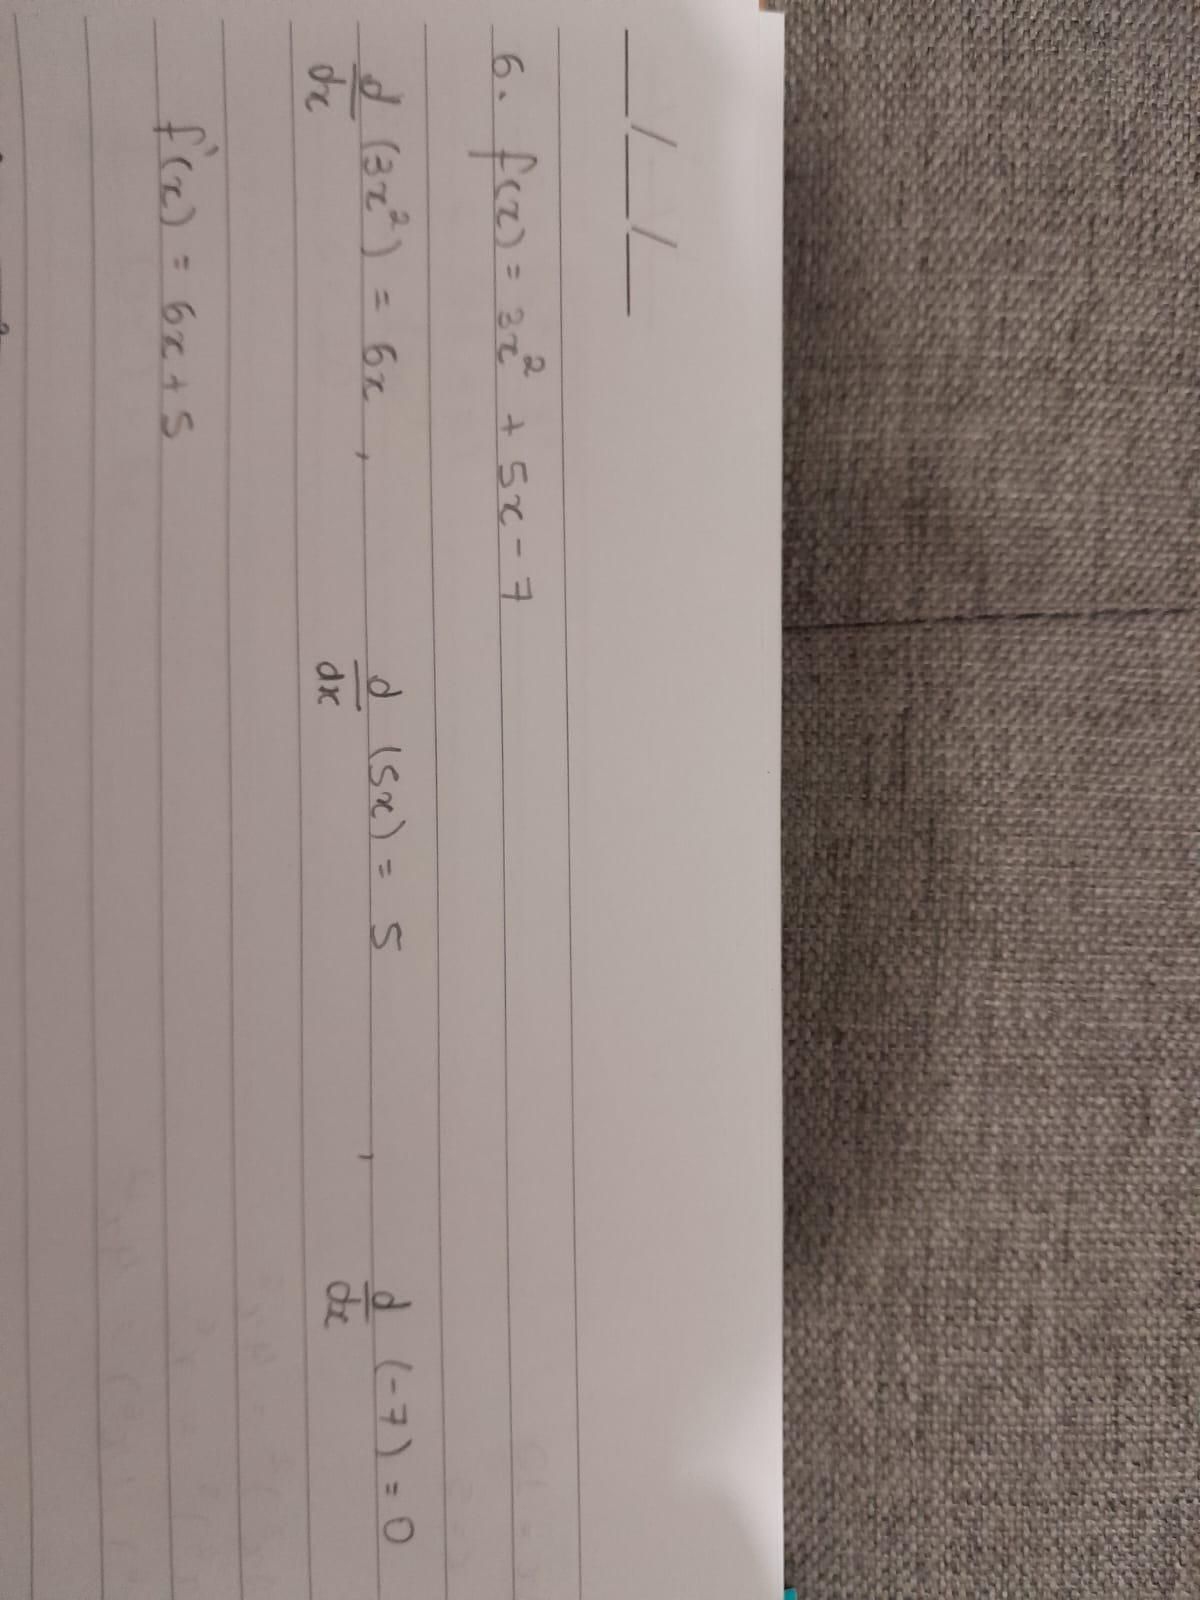 __/__/__
6. f(x) = 3x² + 5x - 7
d/dx (3x²) = 6x , d/dx (5x) = 5 , d/dx (-7) = 0
f'(x) = 6x + 5